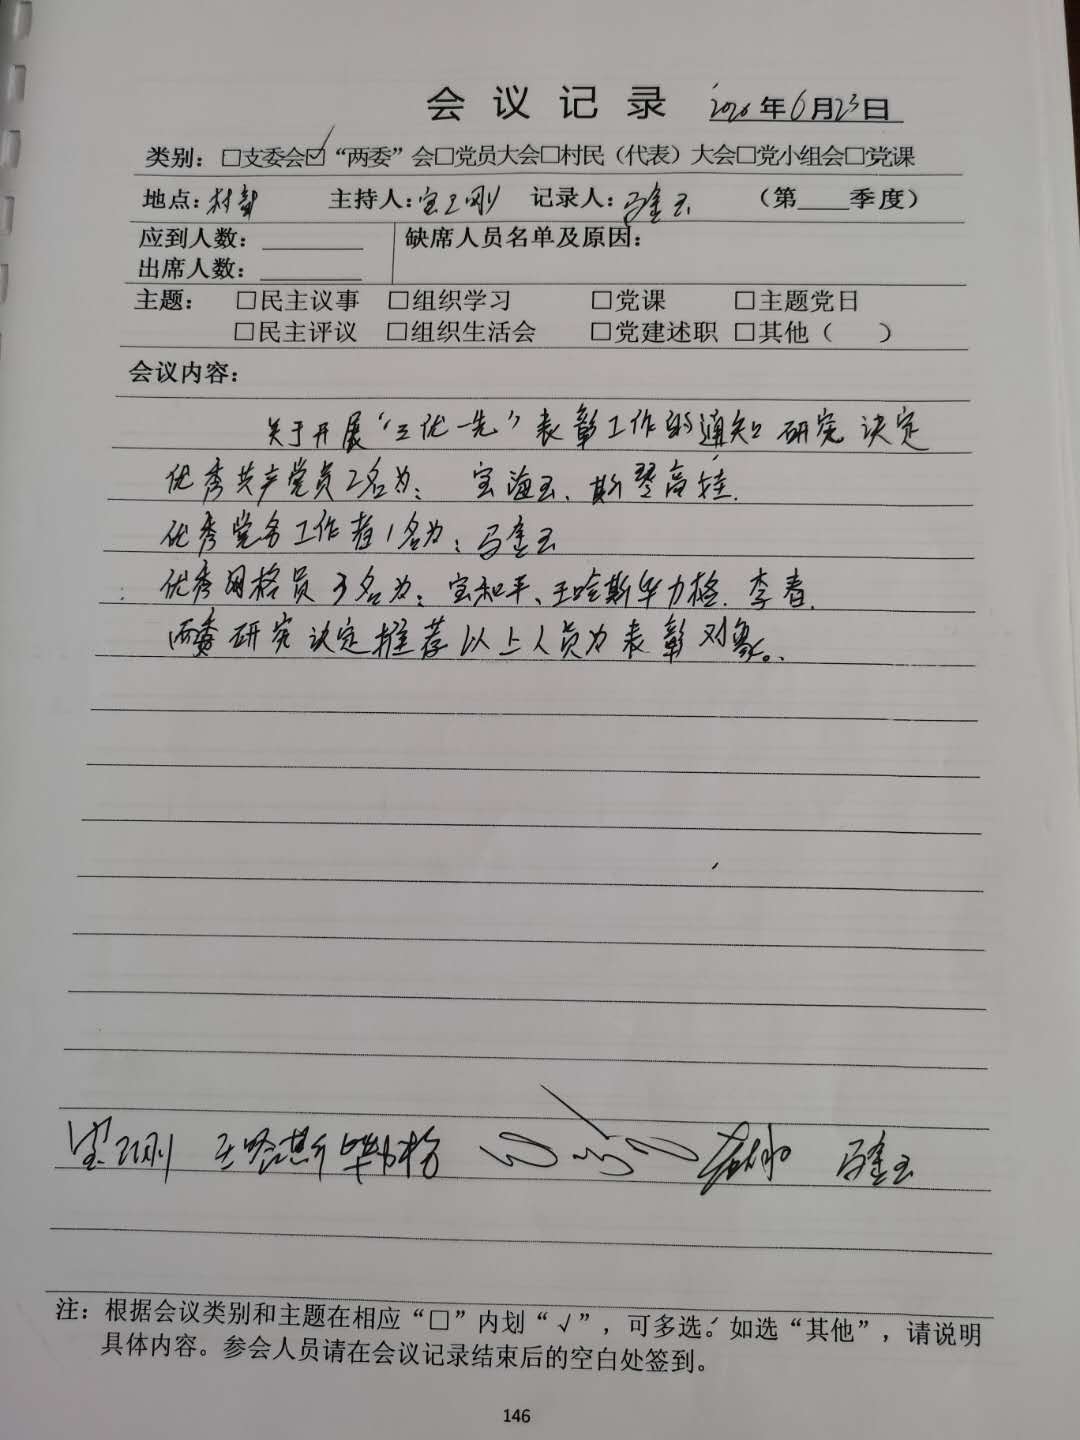 会议记录 2020年6月23日
类别：□支委会☑“两委”会□党员大会□村民（代表）大会□党小组会□党课
地点：村部 主持人：宝卫刚 记录人：马金玉 （第____季度）
应到人数：________ 缺席人员名单及原因：
出席人数：________
主题： □民主议事 □组织学习 □党课 □主题党日
□民主评议 □组织生活会 □党建述职 □其他（ ）
会议内容：
关于开展“三优一先”表彰工作的通知研究决定
优秀共产党员2名为：宝海玉、斯琴高娃.
优秀党务工作者1名为：马金玉
优秀网格员3名为：宝和平、王哈斯毕力格.李春.
两委研究决定推荐以上人员为表彰对象。
宝卫刚 王哈斯毕力格 马金玉
注：根据会议类别和主题在相应“□”内划“√”，可多选。如选“其他”，请说明
具体内容。参会人员请在会议记录结束后的空白处签到。
146